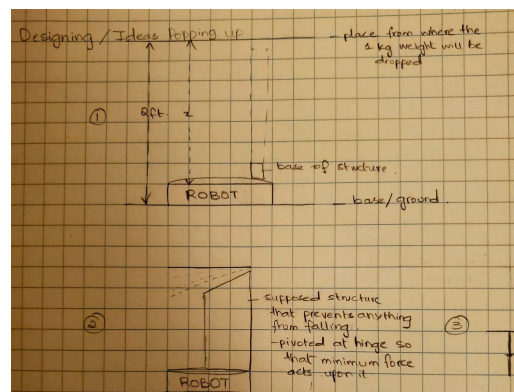 Designing / Ideas Popping up
place from where the
1 kg weight will be
dropped
①
2ft.
x
base of structure.
ROBOT
base/ground.
②
supposed structure
that prevents anything
from falling.
-pivoted at hinge so
that minimum force
acts upon it
③
ROBOT